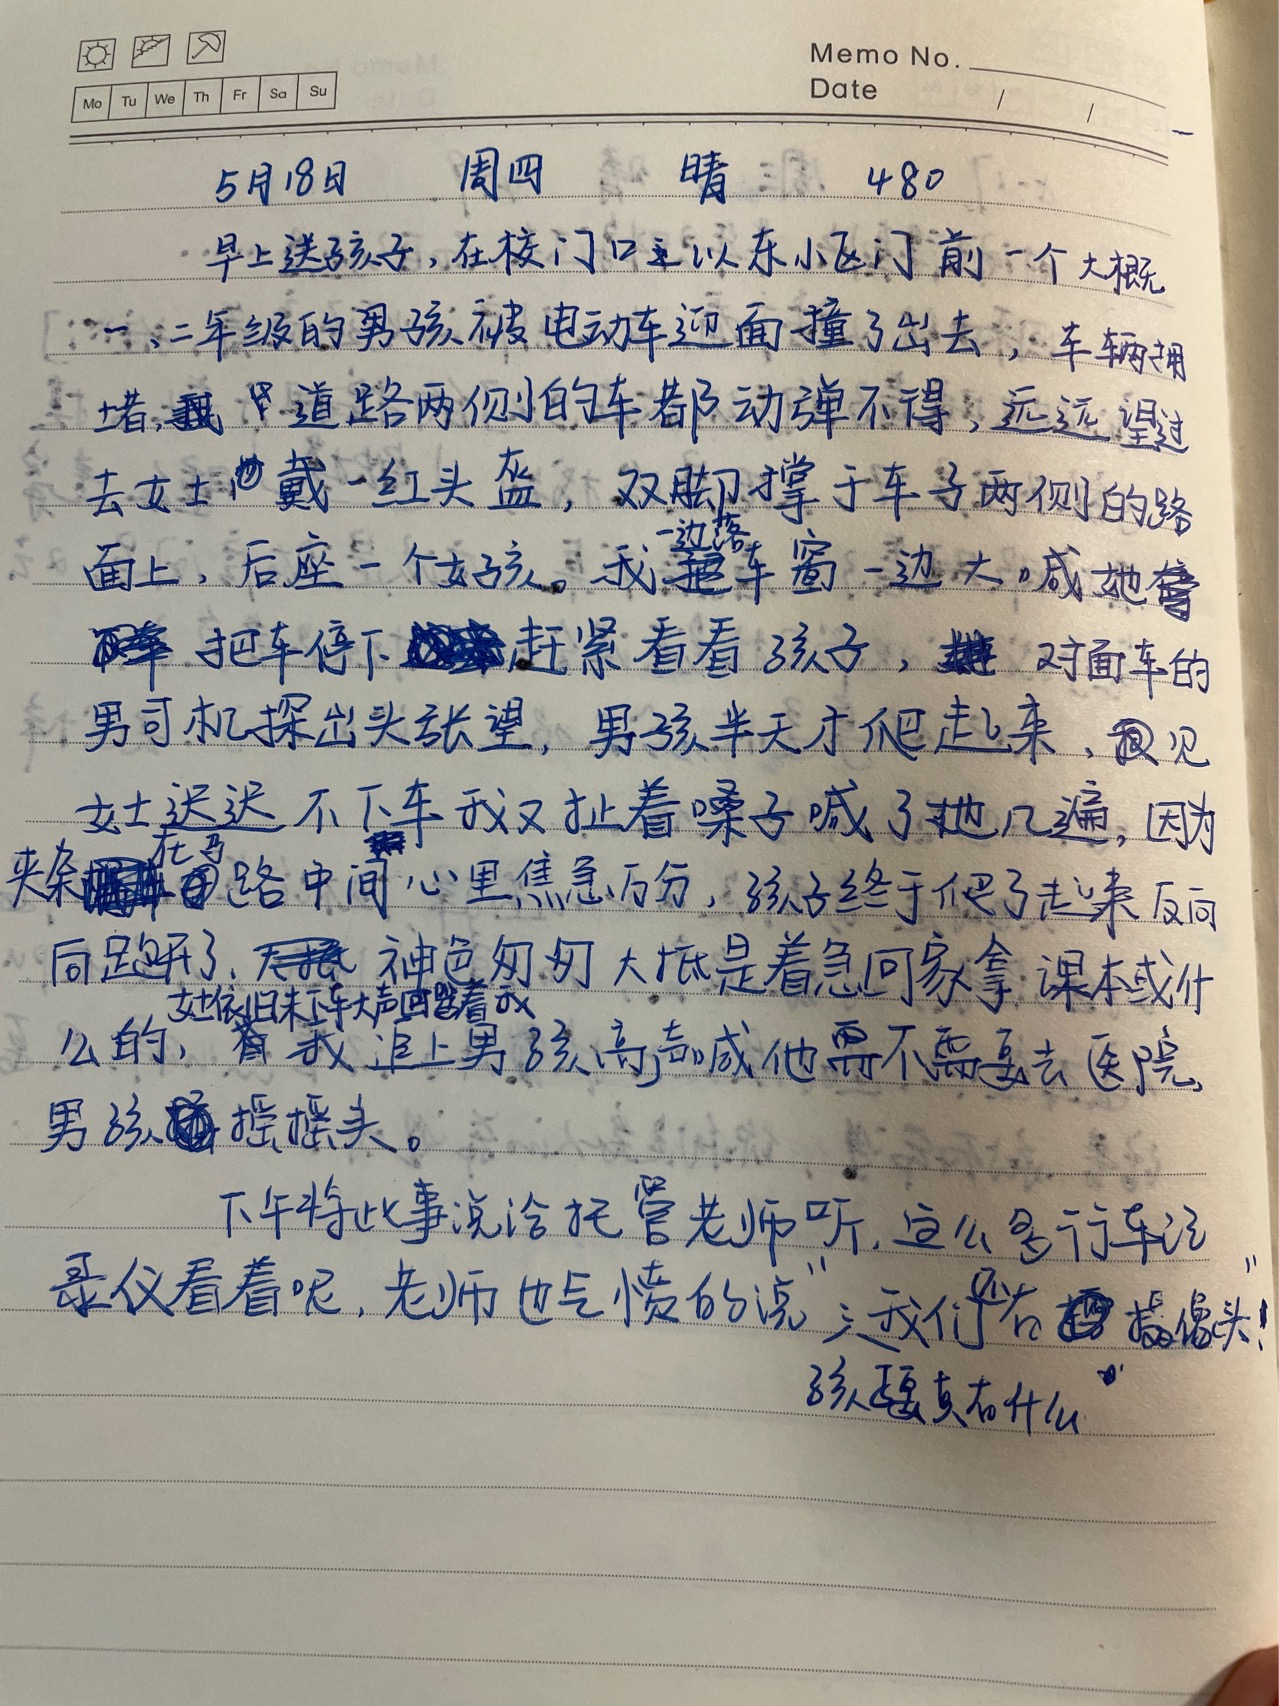 Memo No.
Mo Tu We Th Fr Sa Su
Date / /
5月18日 周四 晴 480
早上送孩子,在校门口以东小区门前一个大概
一、二年级的男孩被电动车迎面撞了出去,车辆拥
堵,道路两侧的车都动弹不得,远远望过
去女士戴一红头盔,双脚撑于车子两侧的路
面上,后座一个女孩。我一边落车窗一边大喊她
把车停下赶紧看看孩子,对面车的
男司机探出头张望,男孩半天才爬起来,见
女士迟迟不下车我又扯着嗓子喊了她几遍,因为
夹杂在马路中间心里焦急万分,孩子终于爬了起来反向
向跑开了、神色匆匆大抵是着急回家拿课本或什
么的,女士依旧未下车大声回望着我
我追上男孩高声喊他需不需要去医院,
男孩摇摇头。
下午将此事说给托管老师听,这么多行车记
录仪看着呢,老师也气愤的说“我们有摄像头!”
孩要真有什么